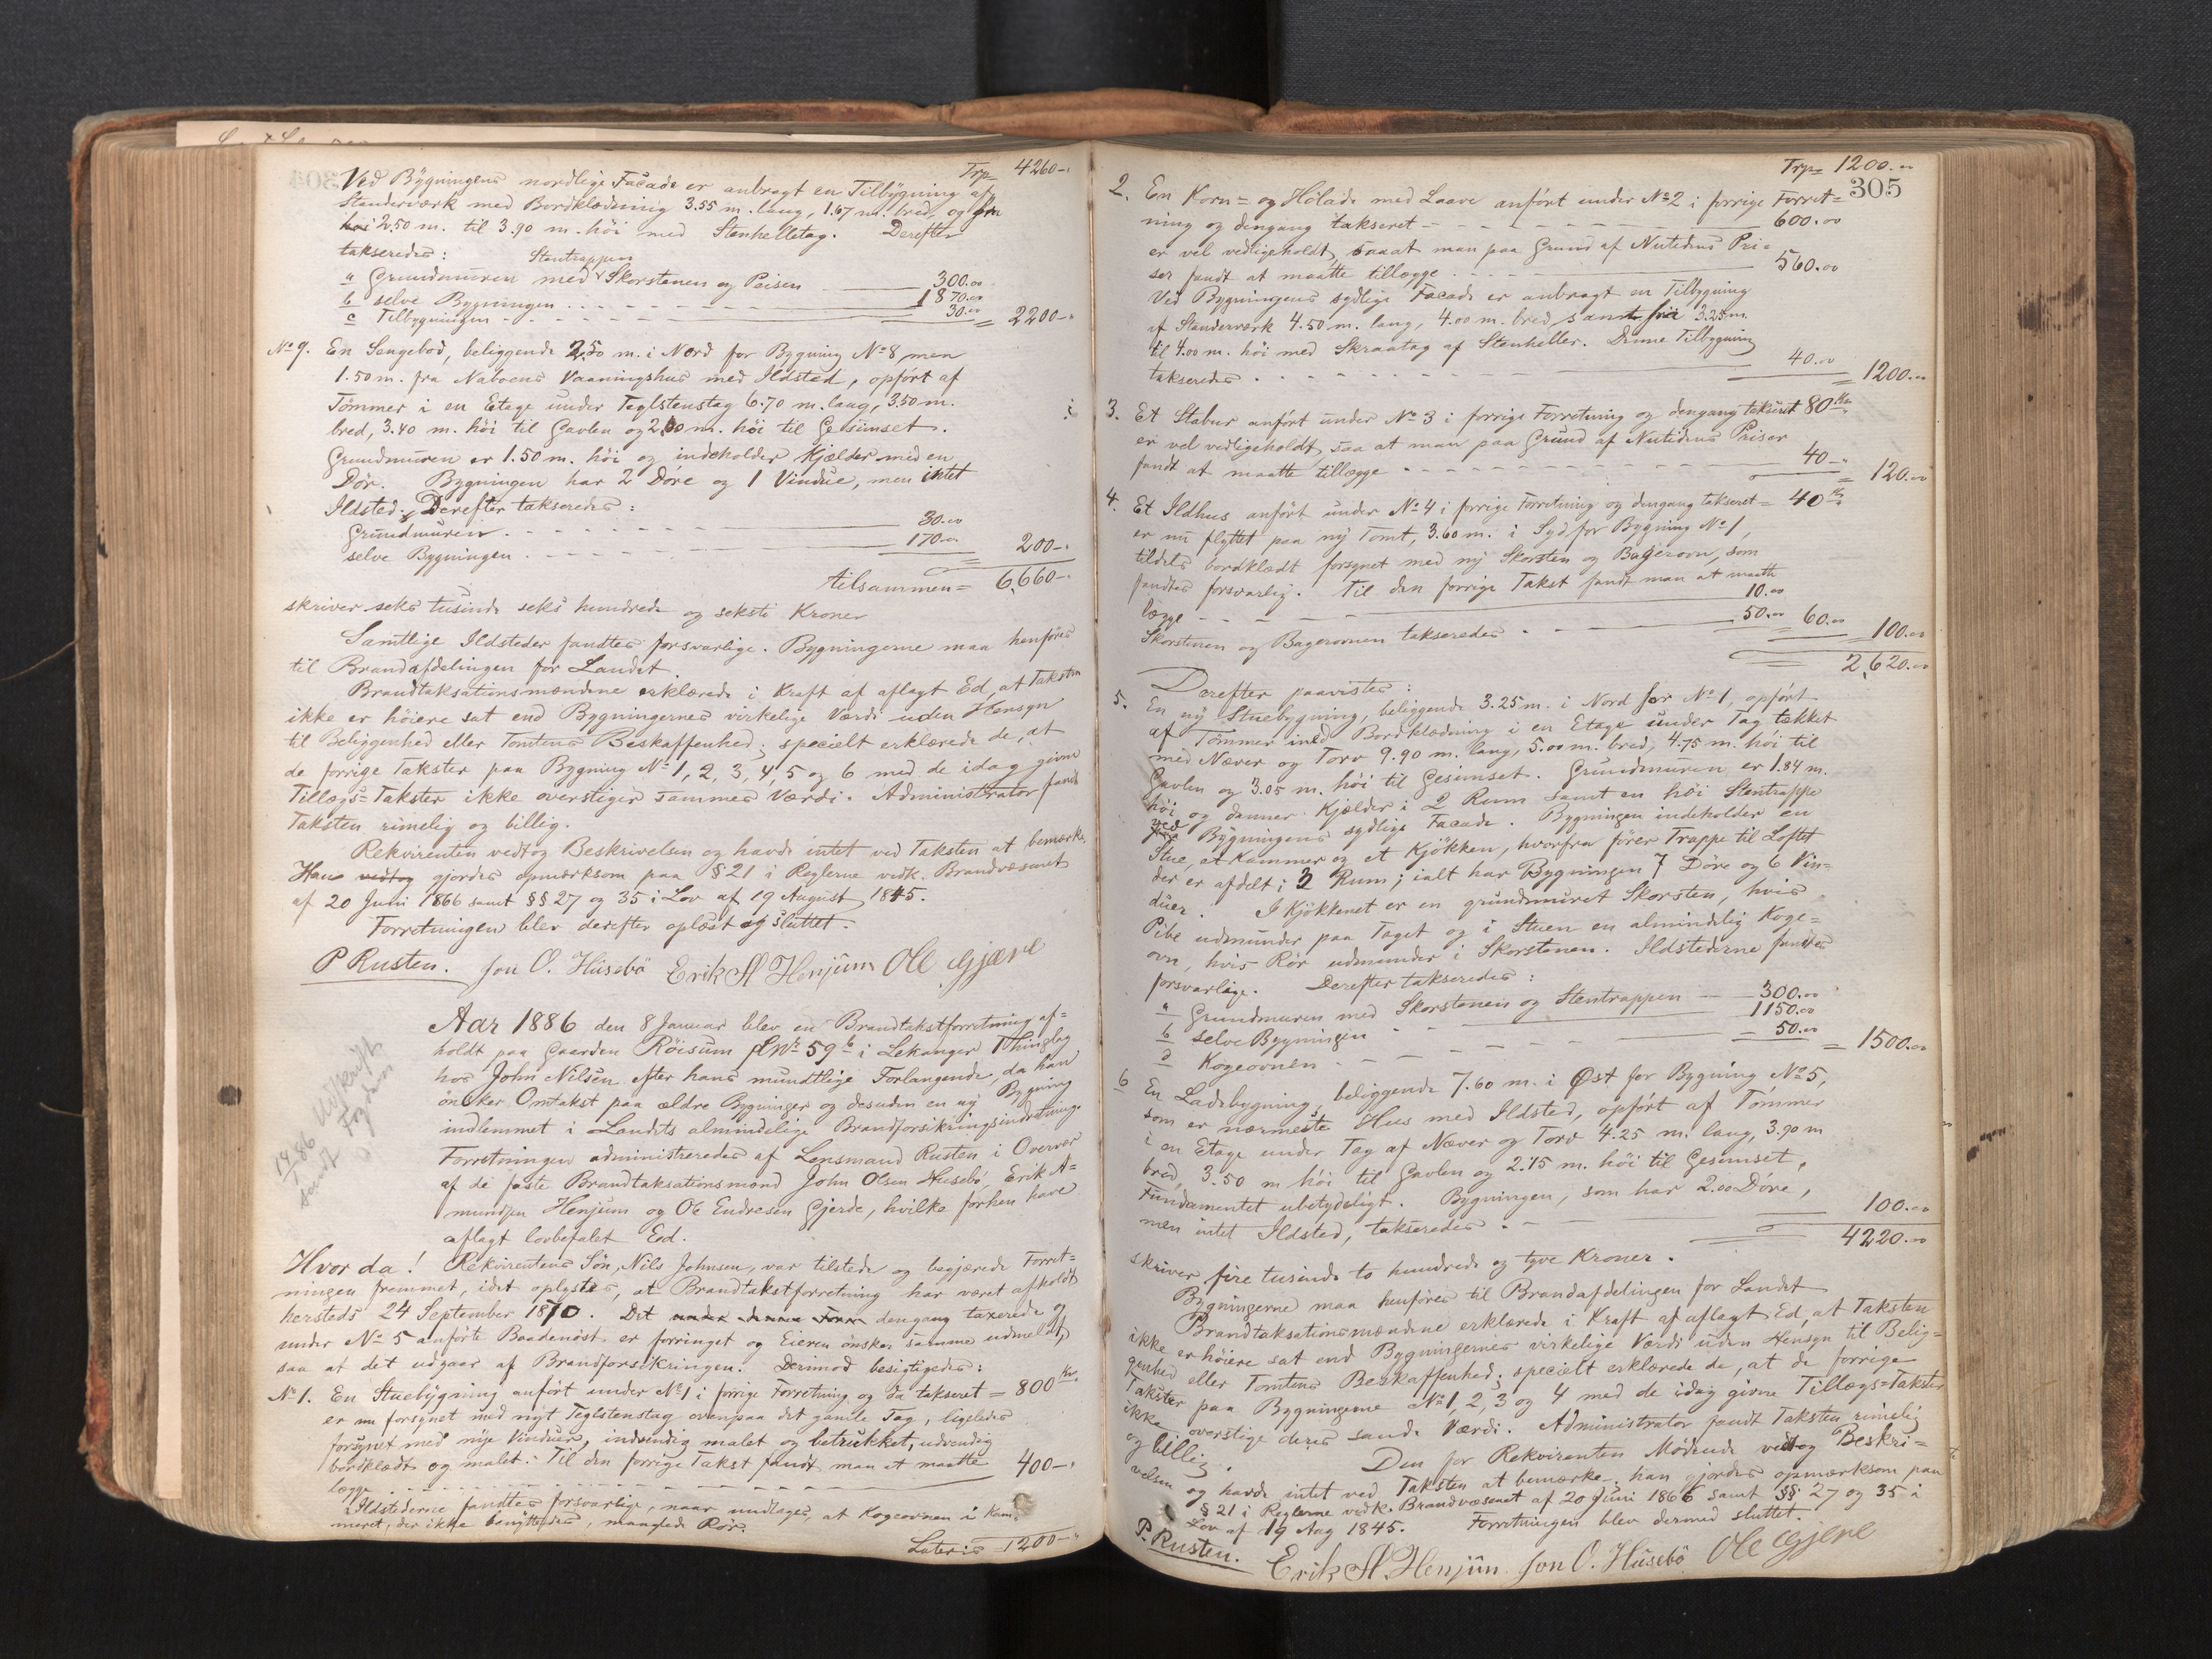 Trp= 4260-"
Ved Bygningens nordlige Facade er anbragt en Tilbygning af
Standerværk med Bordklædning 3.55 m. lang, 1.67 m. bred, og fra
høi 2.50 m. til 3.90 m. høi med Stenhelletag. Derefter
takseredes:
Stentrappen
a Grundmuren med Skorstenen og Peisen 300.00
b selve Bygningen 1870.00
c Tilbygningen 30.00 = 2200-"
No 9. En Sengebod, beliggende 2.50 m. i Nord for Bygning No 8, men
1.50 m. fra Naboens Vaaningshus med Ildsted, opført af
Tømmer i en Etage under Teglstenstag 6.70 m. lang, 3.50 m.
bred, 3.40 m. høi til Gavlen og 2.00 m. høi til Gesimset.
Grundmuren er 1.50 m. høi og indeholder Kjælder med en
Dør. Bygningen har 2 Døre og 1 Vindue, men intet
Ildsted. Derefter takseredes:
Grundmuren 30.00
selve Bygningen 170.00 200-"
tilsammen = 6,660-"
skriver seks tusinde seks hundrede og seksti Kroner
Samtlige Ildsteder fandtes forsvarlige. Bygningerne maa henføres
til Brandafdelingen for Landet.
Brandtaksationsmændene erklærede i Kraft af aflagt Ed, at Taksten
ikke er høiere sat end Bygningernes virkelige Værdi uden Hensyn
til Beliggenhed eller Tomtens Beskaffenhed; specielt erklærede de, at
de forrige Takster paa Bygning No 1, 2, 3, 4, 5 og 6 med de idag givne
Tillægs=Takster ikke overstiger sammes Værdi. Administrator fandt
Taksten rimelig og billig.
Rekvirenten vedtog Beskrivelsen og havde intet ved Taksten at bemærke.
Han vedtog gjordes opmærksom paa § 21 i Reglerne vedk. Brandvæsenet
af 20 Juni 1866 samt §§ 27 og 35 i Lov af 19 August 1845.
Forretningen blev derefter oplæst og sluttet.
P Rusten. Jon O. Husebö Erik A Henjum Ole Gjære
Aar 1886 den 8 Januar blev en Brandtakstforretning af=
holdt paa Gaarden Röisum gl No 59 b i Lekanger Thinglag
hos John Nilsen efter hans mundtlige Forlangende, da han
ønsker Omtakst paa ældre Bygninger og desuden en ny Bygning
indlemmet i Landets almindelige Brandforsikringsindretning.
Forretningen administreredes af Lensmand Rusten i Overvær
af de faste Brandtaksationsmænd John Olsen Husebö, Erik A=
mundsen Henjum og Ole Endresen Gjerde, hvilke forhen have
aflagt lovbefalet Ed.
Hvor da! Rekvirentens Søn, Nils Johnsen, var tilstede og begjærede Forret=
ningen fremmet, idet oplystes, at Brandtakstforretning har været afholdt
hersteds 24 September 1870. Det dengang taxerede og
under No 5 anførte Baadenøst er forringet og Eieren ønsker samme udmeldt,
saa at det udgaar af Brandforsikringen. Derimod besigtigedes:
No 1. En Stuebygning anført under No 1 i forrige Forretning og da takseret = 800 Kr.
er nu forsynet med nyt Teglstenstag ovenpaa det gamle Tag, ligeledes
forsynet med nye Vinduer, indvendig malet og betrukket, udvendig
bordklædt og malet. Til den forrige Takst fandt man at maatte
lægge 400-"
Ildstederne fandtes forsvarlige, naar undtages, at Kogeovnen i Kam=
meret, der ikke benyttedes, manglede Rør.
Lateris 1200-"
Udskrift
Fogden
1886
sendt
305
Trp= 1200.00
2. En Korn= og Hölade med Laave anført under No 2 i forrige Forret=
ning og dengang takseret 600.00
er vel vedligeholdt, saaat man paa Grund af Nutidens Pri=
ser fandt at maatte tillægge 560.00
Ved Bygningens sydlige Facade er anbragt en Tilbygning
af Standerværk 4.50 m. lang, 4.00 m. bred samt fra 3.25 m.
til 4.00 m. høi med Skraatag af Stenheller. Denne Tilbygning
takseredes 40.00 = 1200.00
3. Et Stabur anført under No 3 i forrige Forretning og dengang takseret 80 Kr
er vel vedligeholdt, saa at man paa Grund af Nutidens Priser
fandt at maatte tillægge 40-" = 120.00
4. Et Ildhus anført under No 4 i forrige Forretning og dengang takseret = 40 Kr
er nu flyttet paa ny Tomt, 3.60 m. i Syd for Bygning No 1,
tildels bordklædt forsynet med ny Skorsten og Bagerovn, som
fandtes forsvarlig. Til den forrige Takst fandt man at maatte
lægge 10.00
Skorstenen og Bagerovnen takseredes 50.00 60.00 100.00
2,620.00
Derefter paavistes:
5. En ny Stuebygning, beliggende 3.25 m. i Nord for No 1, opført
af Tømmer med Bordklædning i en Etage under Tag tækket
med Næver og Torv 9.90 m. lang, 5.00 m. bred, 4.75 m. høi til
Gavlen og 3.05 m. høi til Gesimset. Grundmuren er 1.84 m.
høi og danner Kjælder i 2 Rum samt en høi Stentrappe
ved Bygningens sydlige Facade. Bygningen indeholder en
Stue, et Kammer og et Kjøkken, hvorfra fører Trappe til Loftet,
der er afdelt i 3 Rum; ialt har Bygningen 7 Døre og 6 Vin=
duer. I Kjøkkenet er en grundmuret Skorsten, hvis
Pibe udmunder paa Taget og i Stuen en almindelig Koge=
ovn, hvis Rør udmunder i Skorstenen. Ildstederne fandtes
forsvarlige. Derefter takseredes:
a Grundmuren med Skorstenen og Stentrappen 300.00
b selve Bygningen 1150.00
c Kogeovnen 50.00 = 1500.00
6 En Ladebygning, beliggende 7.60 m. i Øst for Bygning No 5,
som er nærmeste Hus med Ildsted, opført af Tømmer
i en Etage under Tag af Næver og Torv 4.25 m. lang, 3.90 m
bred, 3.50 m høi til Gavlen og 2.75 m. høi til Gesimset.
Fundamentet ubetydeligt. Bygningen, som har 2.00 Døre,
men intet Ildsted, takseredes 100.00
4220.00
skriver fire tusinde to hundrede og tyve Kroner.
Bygningerne maa henføres til Brandafdelingen for Landet
Brandtaksationsmændene erklærede i Kraft af aflagt Ed, at Taksten
ikke er høiere sat end Bygningernes virkelige Værdi uden Hensyn til Belig=
genhed eller Tomtens Beskaffenhed; specielt erklærede de, at de forrige
Takster paa Bygningerne No 1, 2, 3 og 4 med de idag givne Tillægs=Takster
ikke overstige deres sande Værdi. Administrator fandt Taksten rimelig
og billig. Den for Rekvirenten Mødende vedtog Beskri=
velsen og havde intet ved Taksten at bemærke, han gjordes opmærksom paa
§ 21 i Reglerne vedk. Brandvæsenet af 20 Juni 1866 samt §§ 27 og 35 i
Lov af 19 Aug 1845. Forretningen blev dermed sluttet.
P. Rusten. Erik A. Henjum Jon O. Husebö Ole Gjære